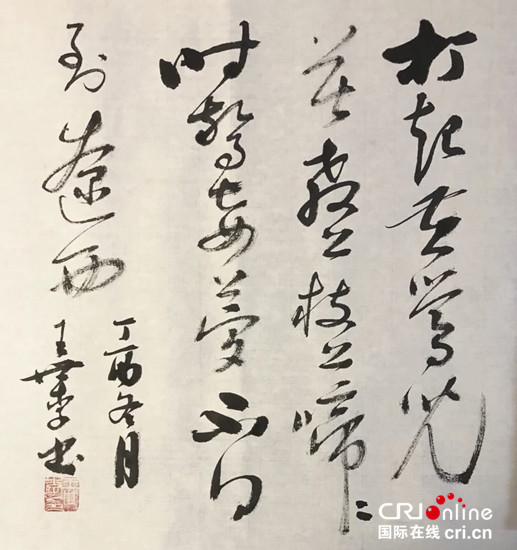 打起黄鶯兒
莫教枝上啼〻
時驚妾夢不得
到遼西
丁酉冬月
王書
CRI online
国际在线 cri.cn